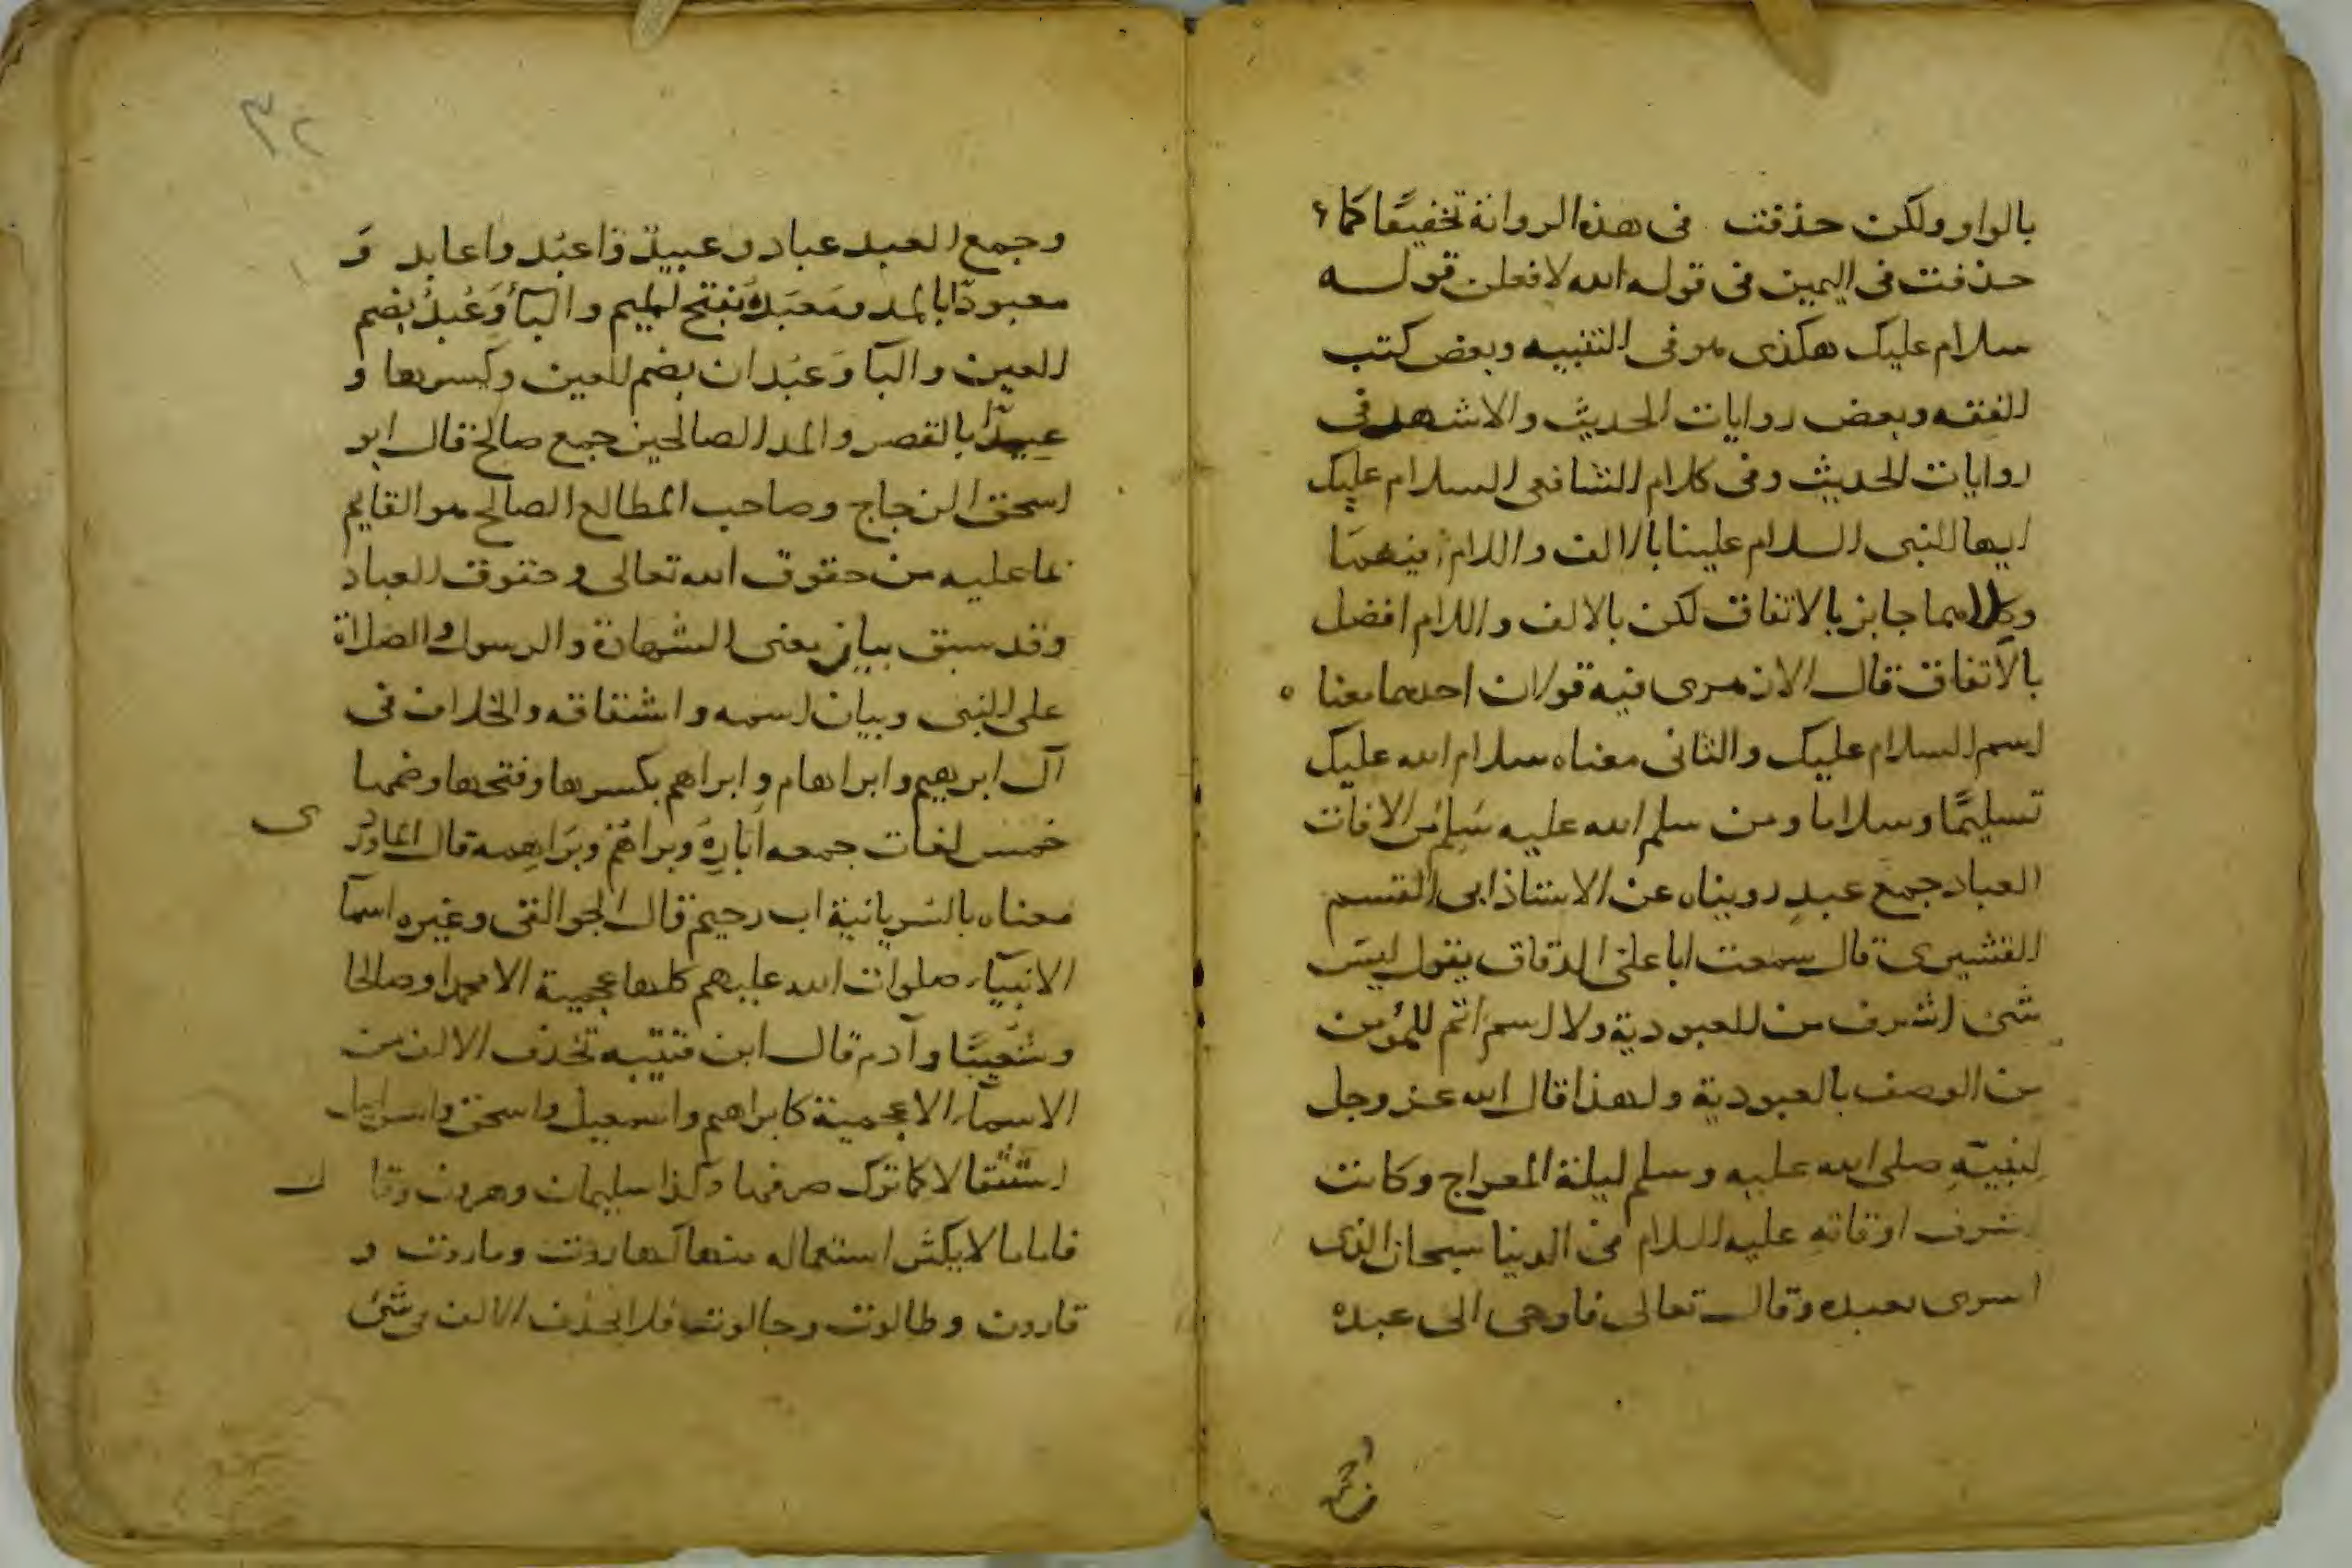 بالواو ولكن حذفت في هذه الرواية تخفيفًا كما
حذفت في اليمين في قوله الله لافعلن قوله
سلام عليك هكذى هو في التنبيه وبعض كتب
الفقه وبعض روايات الحديث والاشهر في
روايات الحديث وفي كلام الشافعي السلام عليك
ايها النبي السلام علينا بالالف واللام فيهما
وكلاهما جايز بالاتفاق لكن بالالف واللام افضل
بالاتفاق قال الازهري فيه قولان احدهما معنا ه
اسم السلام عليك والثاني معناه سلام الله عليك
تسليمًا وسلاما ومن سلم الله عليه سَلِم من الافات
العباد جمع عبدٍ رويناه عن الاستاذ ابي القسم
القشيري قال سمعت ابا علي الدقاق يقول ليس
شي اشرف من العبودية ولا اسم اتم للمؤمن
من الوصف بالعبودية ولهذا قال الله عز وجل
لنبيّهِ صلى الله عليه وسلم ليلة المعراج وكانت
اشرف اوقاته عليه السلام في الدنيا سبحان الذي
اسرى بعبده وقال تعالى فاوحى الى عبده
٣٢
وجمع العبد عباد وعبيد واعبُد واعابد وَ
معبودًا بالمد ومَعبَدة بفتح الميم والبآ وَعُبُدُ بضم
العين والبآ وَعبُدان بضم العين وكسرها و
عبِدّا بالقصر والمد الصالحين جمع صالح قال ابو
اسحق الزجاج وصاحب المطالع الصالح هو القايم
بما عليه من حقوق الله تعالى وحقوق العباد
وقد سبق بيان معنى الشهادة والرسول والصلاة
على النبي وبيان اسمه واشتقاقه والخلاف في
آل ابرهيم وابراهام وابراهم بكسرها وفتحها وضمها
خمس لغات جمعه ابارِهُ وبراهُم وبَرَاهِمة قال الماورد ى
معناه بالسُريانية اب رحيم قال الجواليقي وغيره اسمآ
الانبيآء صلوات الله عليهم كلها عجمية الا محمدا وصالحا
وشُعيبًا وآدم قال ابن قتيبه تحذف الالف من
الاسمآء الاعجمية كابراهيم واسمعيل واسحق واسرايل
استثقالا كما ترك صرفها وكذا سليمان وهرون وقا ل
فاما ما لا يكثر استعماله منها كهاروت وماروت و
قارون وطالوت وجالوت فلا تحذف الالف من شئ